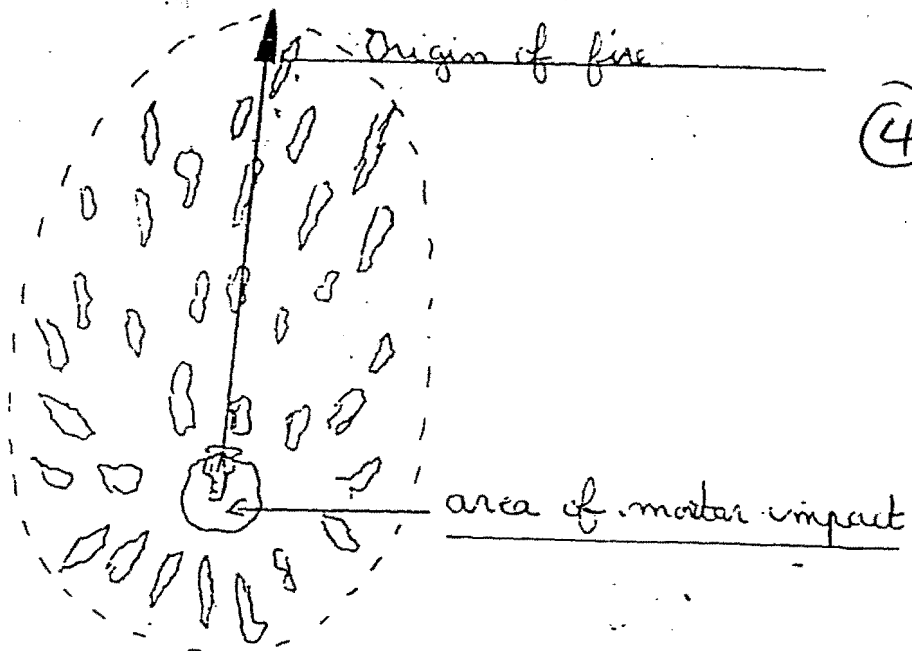 Origin of fire
④
area of mortar impact